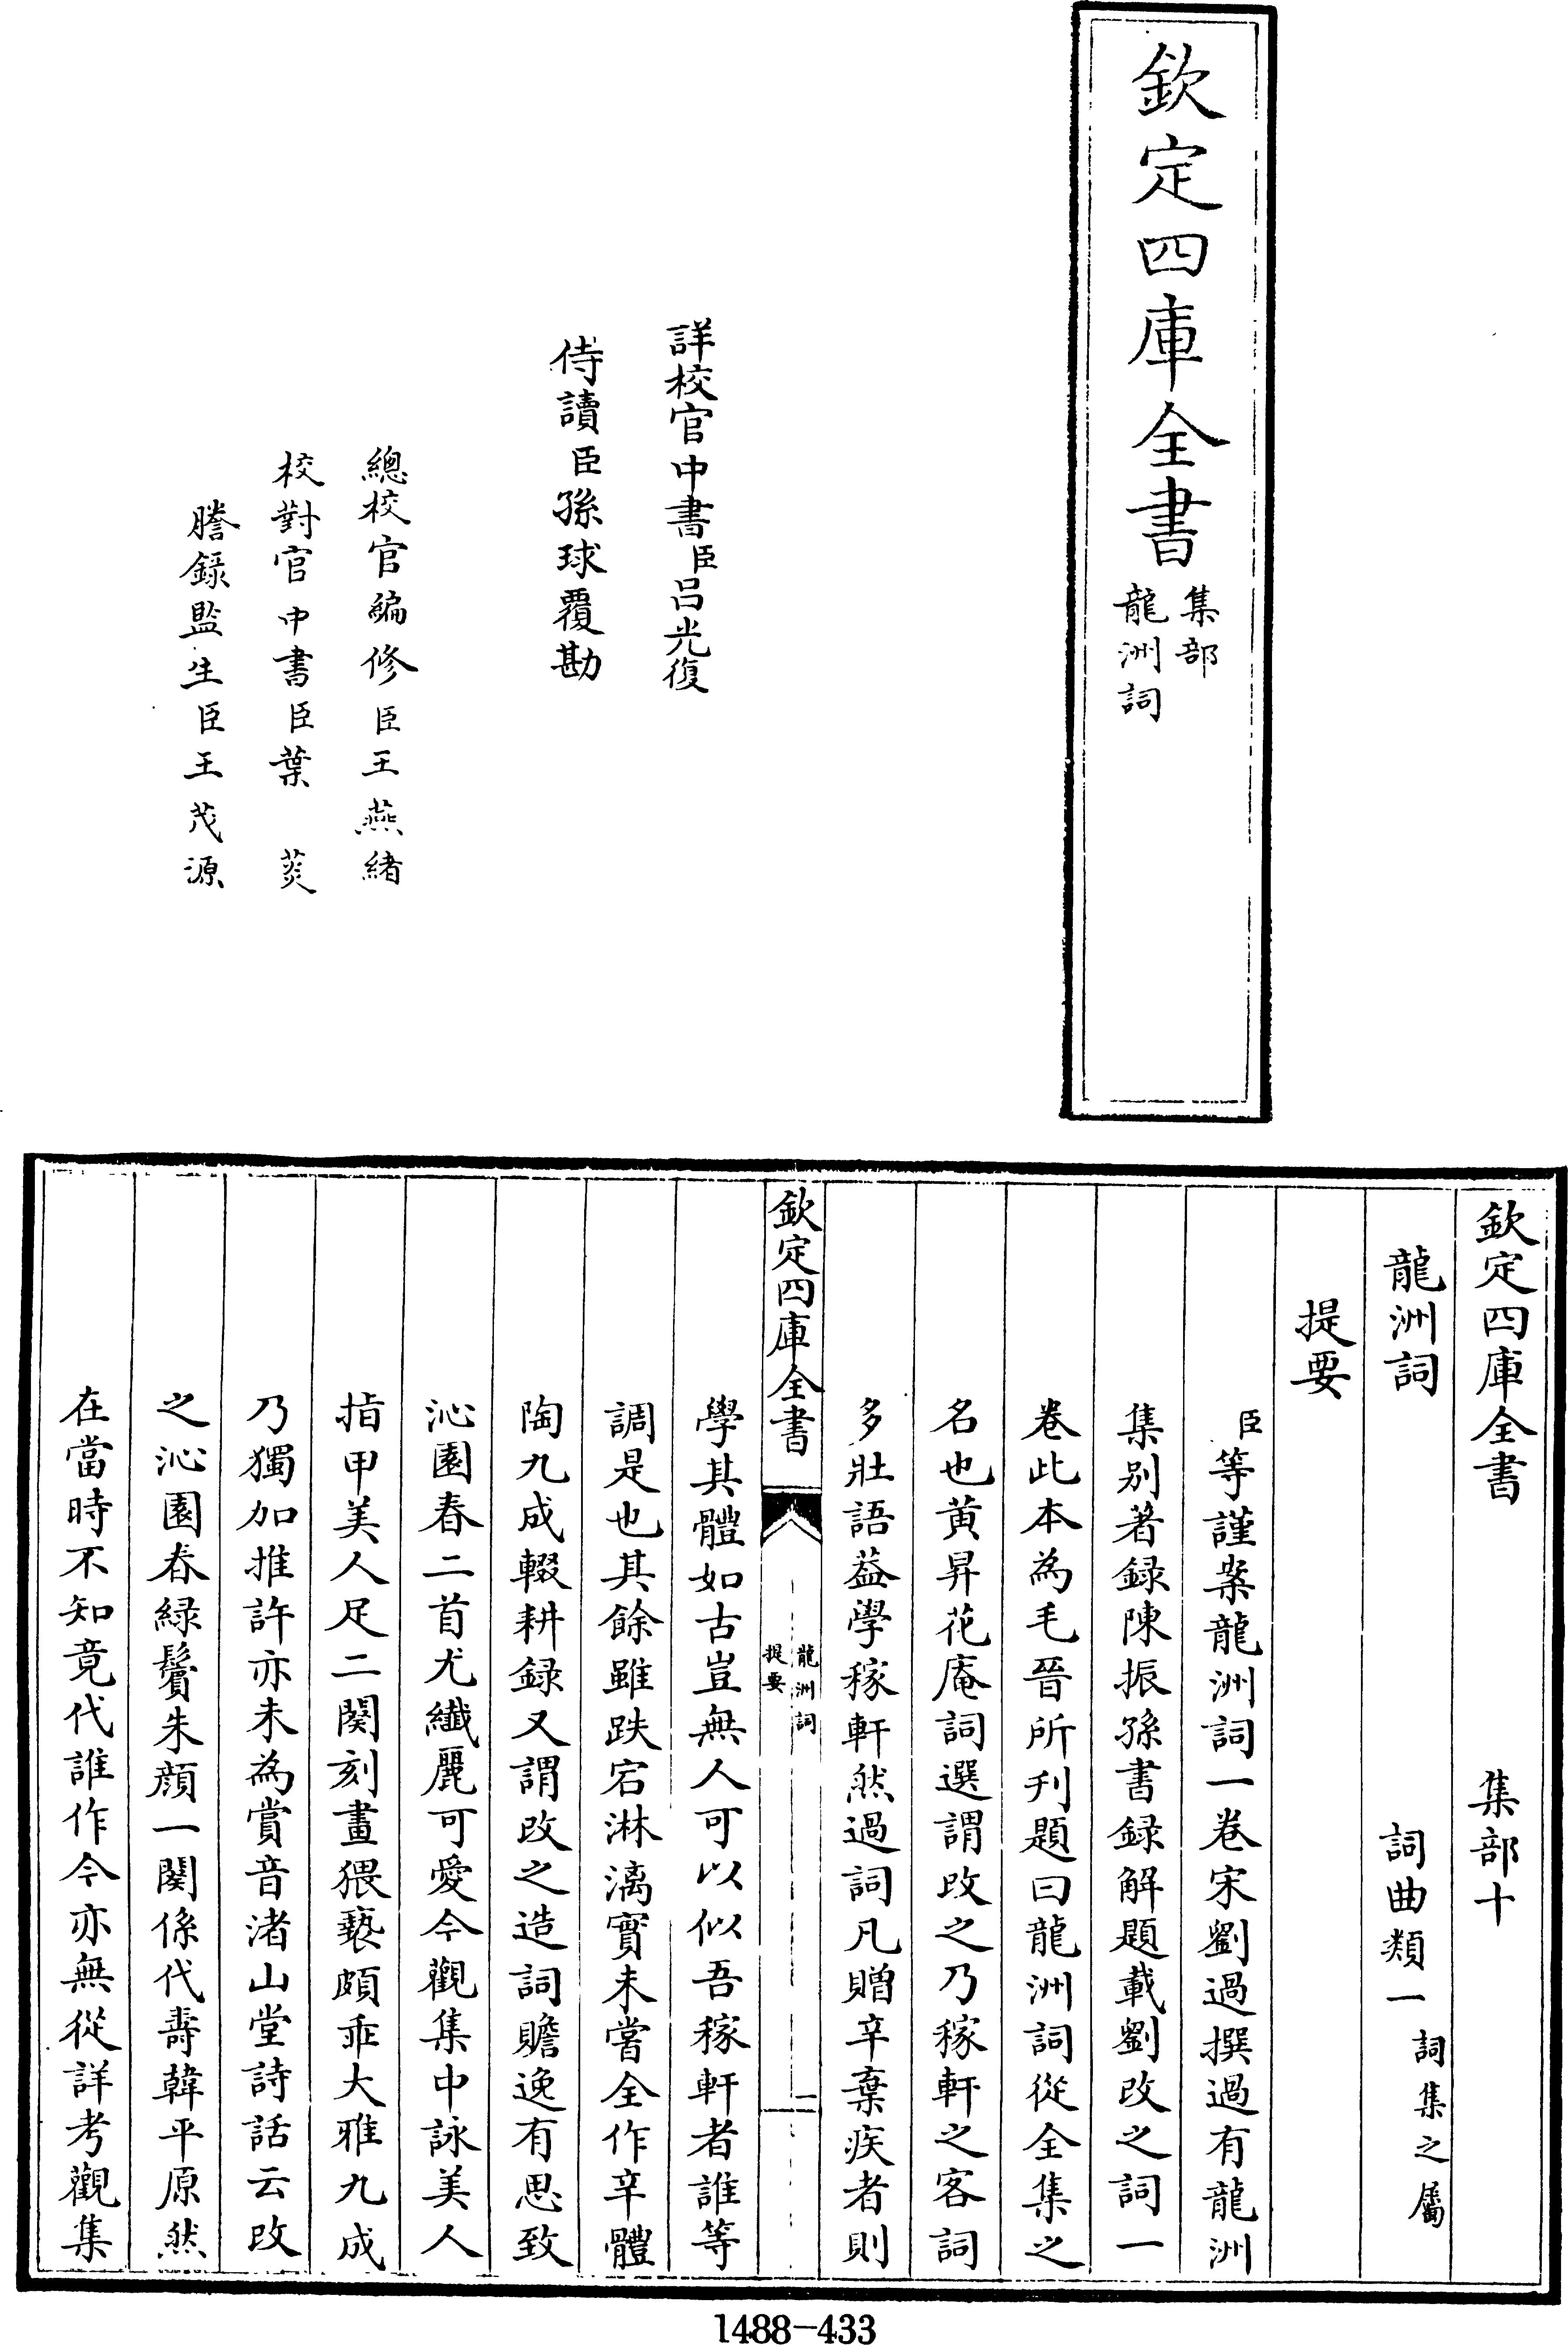 欽定四庫全書
集部
龍洲詞
詳校官中書臣呂光復
侍讀臣孫球覆勘
總校官編修臣王燕緒
校對官中書臣葉 菼
謄錄監生臣王茂源
欽定四庫全書 集部十
龍洲詞 詞曲類一詞集之屬
提要
臣等謹案龍洲詞一卷宋劉過撰過有龍洲
集别著録陳振孫書録解題載劉改之詞一
卷此本為毛晉所刋題曰龍洲詞從全集之
名也黄昇花庵詞選謂改之乃稼軒之客詞
多壯語葢學稼軒然過詞凡贈辛棄疾者則
欽定四庫全書
龍洲詞
提要
一
學其體如古豈無人可以似吾稼軒者誰等
調是也其餘雖跌宕淋漓實未嘗全作辛體
陶九成輟耕録又謂改之造詞贍逸有思致
沁園春二首尤纖麗可愛今觀集中詠美人
指甲美人足二闋刻畫猥褻頗乖大雅九成
乃獨加推許亦未為賞音渚山堂詩話云改
之沁園春緑鬢朱顔一闋係代壽韓平原然
在當時不知竟代誰作今亦無從詳考觀集
1488-433